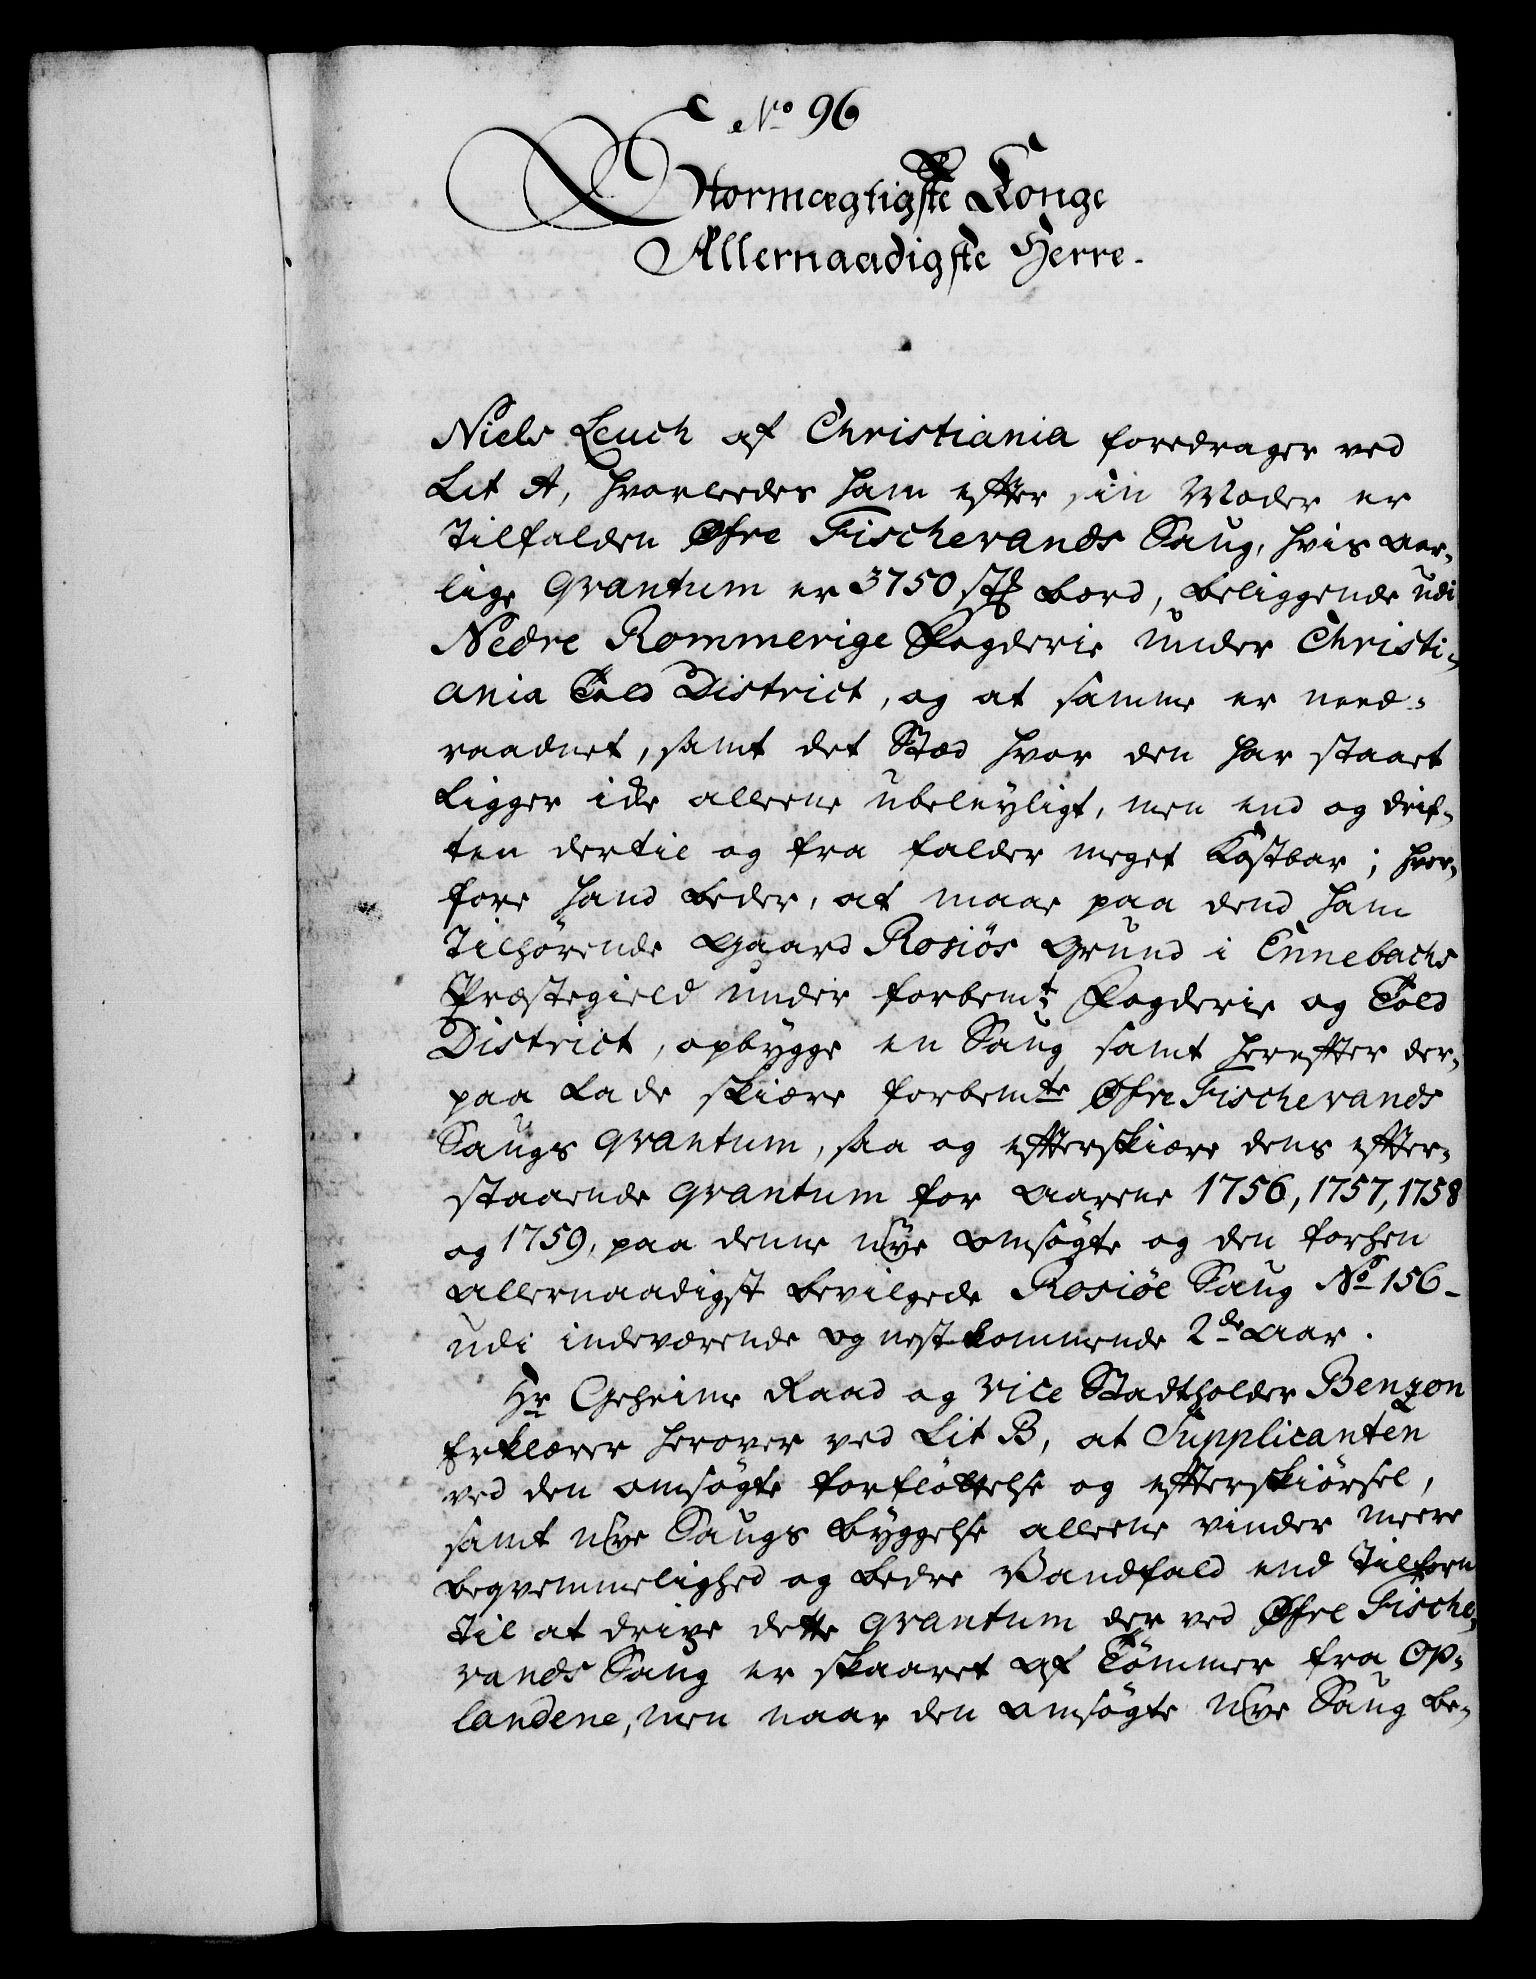 No 96
Stormægtigste Konge
Allernaadigste Herre.
Niels Leuch af Christiania foredrager ved
Lit A, hvorledes ham efter sin Moder er
tilfalden Øfre Fischevands Saug, hvis aar-
lige qvantum er 3750 stk bord, beliggende udi
Nedre Rommerige Fogderie under Christi-
ania Told District, og at samme er need-
raadnet, samt det Stæd hvor den har staaet
ligger icke alleene ubeleyligt, men end og drif-
ten dertil og fra falder meget kostbar; hvor-
fore hand beder, at maae paa dend ham
tilhørende Gaard Rosiøs Grund i Ennebachs
Præstegield under forbemt Fogderie og Told
District, opbygge en Saug samt herefter der-
paa lade skiære forbemte Øfre Fischevands
Saugs qvantum, saa og efterskiære dens efter-
staaende qvantum for aarene 1756, 1757, 1758
og 1759, paa denne nye omsøgte og den forhen
allernaadigst bevilgede Rosiøe Saug No 156-
udi indeværende og nestkommende 2de Aar.
Hr Geheime Raad og Vice Stadtholder Benzon
Erklærer herover ved Lit B, at Supplicanten
ved den omsøgte forfløttelse og efterskiørsel,
samt nye Saugs byggelse alleene vinder meere
beqvemmelighed og bedre Vandfald end tilforn
til at drive dette qvantum der ved Øfre Fische-
vands Saug er skaaret af Tømmer fra Op-
landene, men naar den omsøgte nye Saug be-